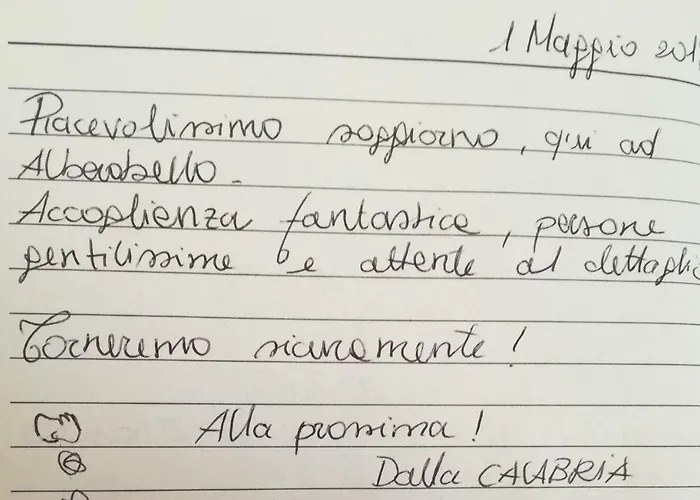 1 Maggio 201
Piacevolissimo soggiorno, qui ad
Alberobello.
Accoglienza fantastica, persone
gentilissime e attente al dettagli
Torneremo sicuramente!
Alla prossima!
Dalla CALABRIA